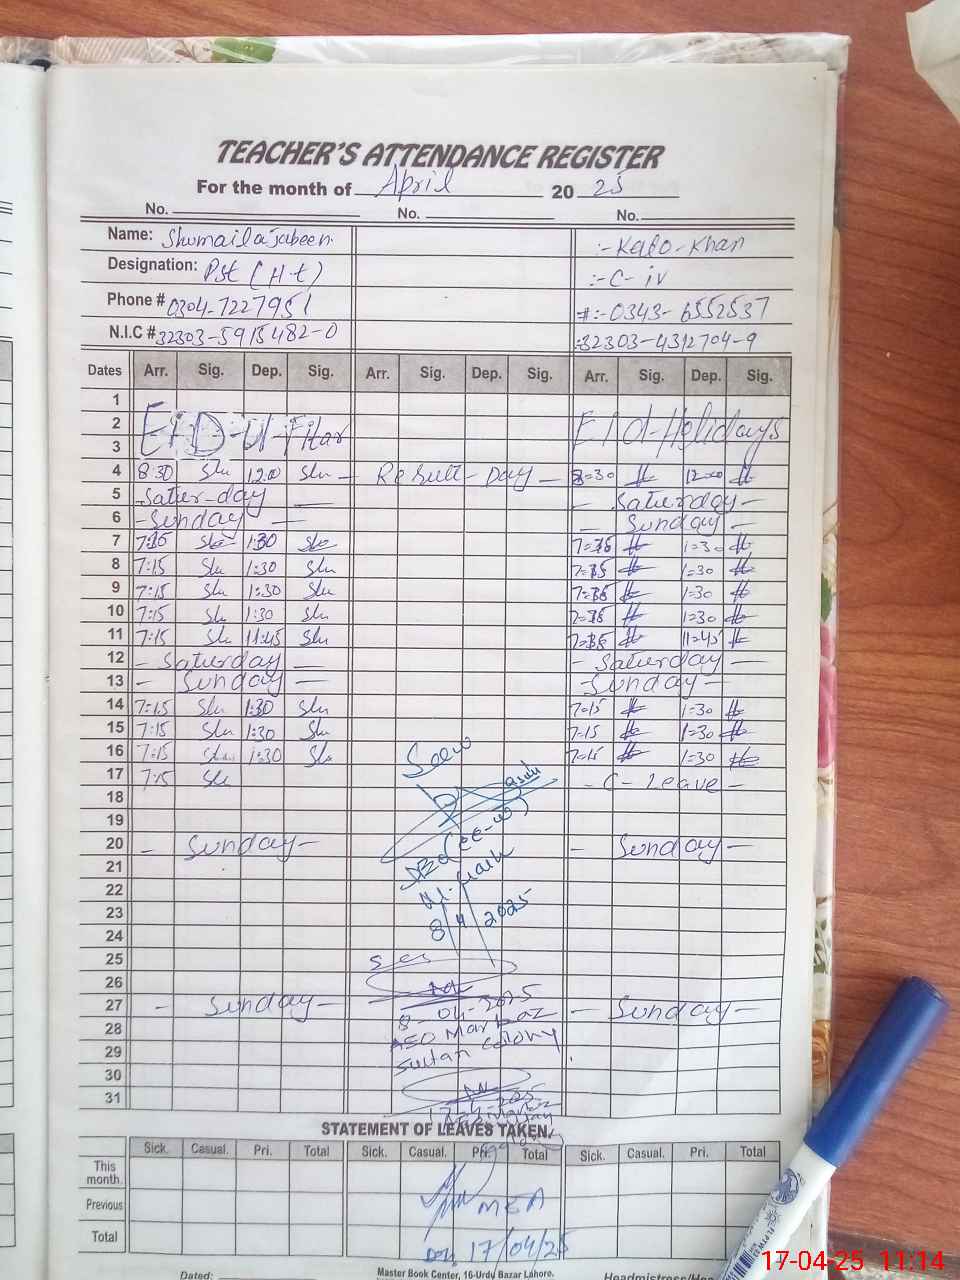 TEACHER'S ATTENDANCE REGISTER
For the month of April 2025
No. No. No.
Name: Shumaila jabeen :-Kalo-Khan
Designation: Pst (H-t) :-C-iv
Phone # 0304-7227951 #:-0343-6552537
N.I.C # 32303-5915482-0 :32303-4312704-9
Dates Arr. Sig. Dep. Sig. Arr. Sig. Dep. Sig. Arr. Sig. Dep. Sig.
1
2 EID-ul-Fitar EId-Holidays
3
4 8:30 Shu 12:00 Shu - Result-Day - 8=30 12=00
5 -Satur-day - - Saturday -
6 -Sunday - - Sunday -
7 7:15 Shu 1:30 Shu 7=15 1=30
8 7:15 Shu 1:30 Shu 7=15 1=30
9 7:15 Shu 1:30 Shu 7=15 1=30
10 7:15 Shu 1:30 Shu 7=15 1=30
11 7:15 Shu 11:45 Shu 7=15 11=45
12 - Saturday - - Saturday -
13 - Sunday - -Sunday -
14 7:15 Shu 1:30 Shu 7=15 1=30
15 7:15 Shu 1:30 Shu 7=15 1=30
16 7:15 Shu 1:30 Shu 7=15 1=30
17 7:15 Shu - C-Leave -
18
19
20 - Sunday - - Sunday -
21
22
23
24
25
26
27 - Sunday - - Sunday -
28
29
30
31
Seen
(EE-W)
8/4/2025
Seen
8-04-2025
AEO Markaz
Sultan Colony
STATEMENT OF LEAVES TAKEN.
Sick. Casual. Pri. Total Sick. Casual. Pri. Total Sick. Casual. Pri. Total
This month.
Previous
Total
MEA
17/04/25
Dated: Master Book Center, 16-Urdu Bazar Lahore.
17-04-25 11:14